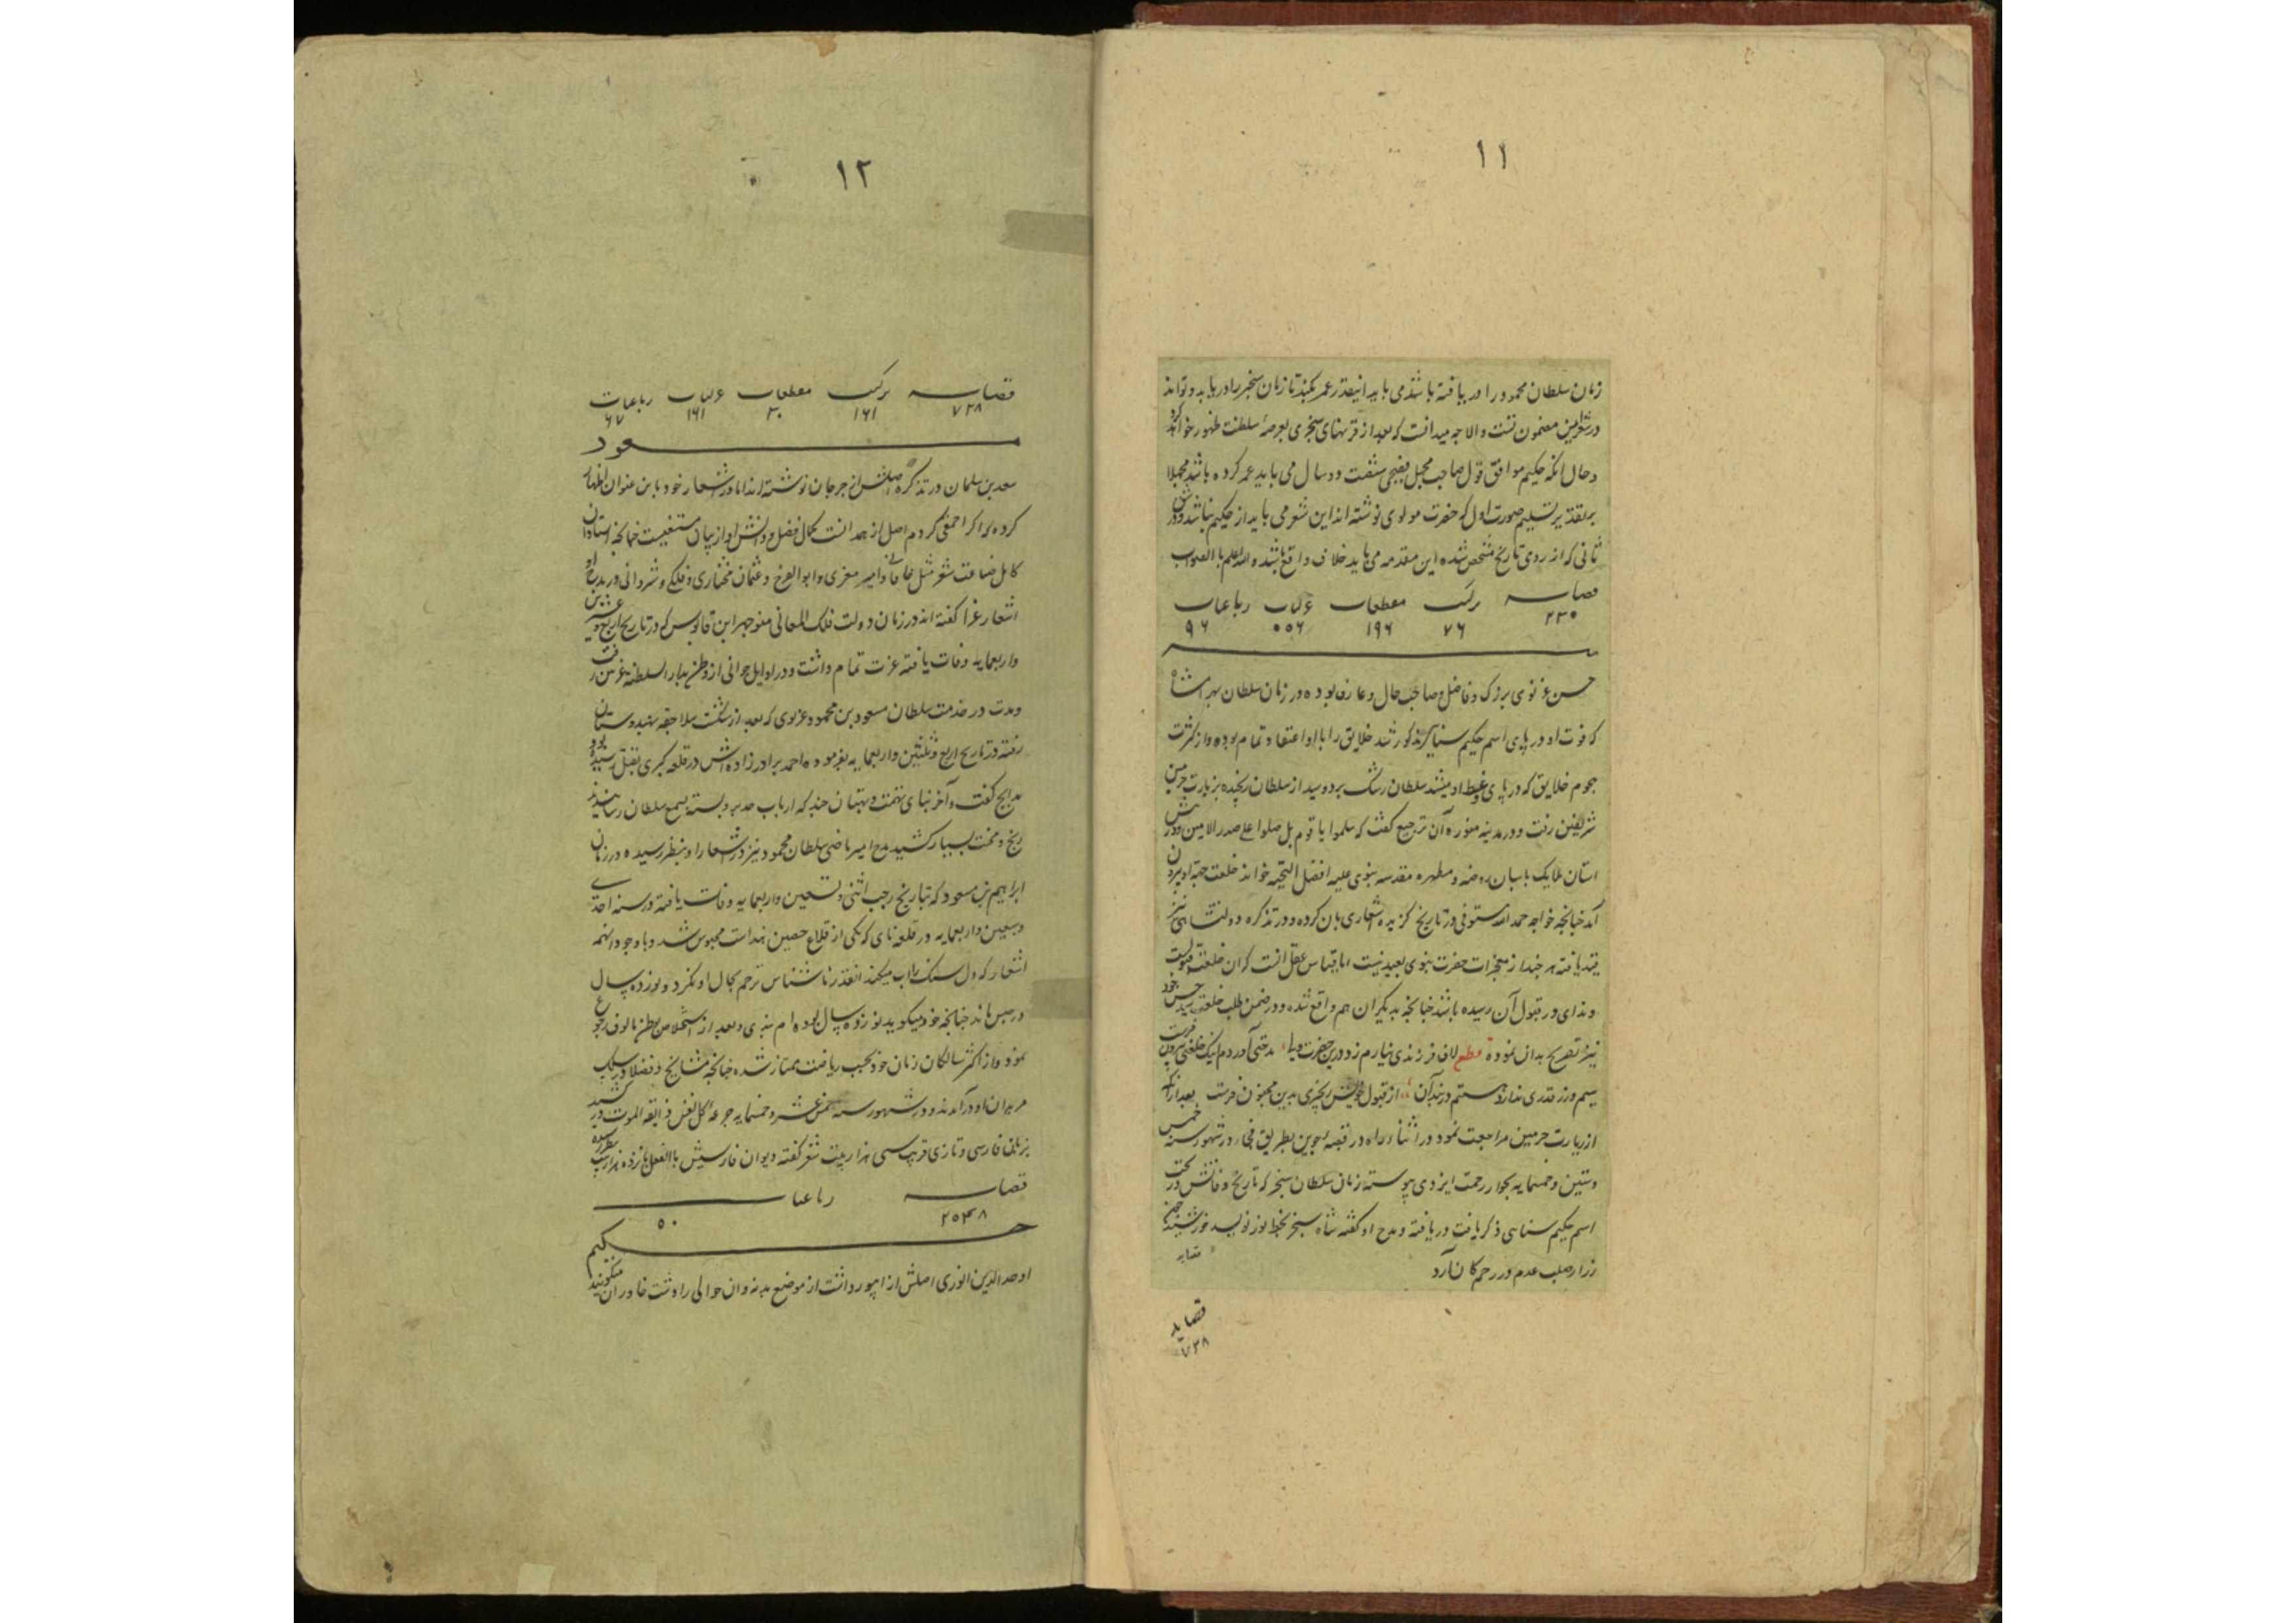 ۱۱
زمان سلطان محمود را دریافته باشد می باید اینقدر عمر بکند تا زمان سنجر را دریابد و تواند
در شعر این مضمون نشست والا چه میدانست که بعد از قرنهای سنجری بعرصهٔ سلطنت ظهور خواهد کرد
و حال آنکه حکیم موافق قول صاحب مجمل فصیحی شصت و دو سال می باید عمر کرده باشد مجملا
بر تقدیر تسلیم صورت اول که حضرت مولوی نوشته اند این شعر می باید از حکیم نباشد و در شق
ثانی که از روی تاریخ مشخص شده این مقدمه می باید خلاف واقع باشد والله اعلم با الصواب
قصاید ترکیب مقطعات غزلیات رباعیات
۴۳۰ ۷۶ ۱۹۶ ۵۵۶ ۹۶
سید
حسن غزنوی بزرگ و فاضل و صاحب حال و عارف بوده در زمان سلطان بهرامشاه
که فوت او در پای اسم حکیم سنایی مذکور شد خلایق را با او اعتقاد تمام بوده و از کثرت
هجوم خلایق که در پای وعظ او میشد سلطان رشک برد و سید از سلطان رنجیده بزیارت حرمین
شریفین رفت و در مدینه منوره آن ترجیع گفت که سلموا یا قوم بل صلوا علی صدر الامین و درش
آستان ملایک پاسبان روضه و مطهره مقدسه نبوی علیه افضل التحیه خواند خلعت جهة او بیرون
آمد چنانچه خواجه حمدالله مستوفی در تاریخ گزیده اشعاری بان کرده و در تذکره دولتشاهی نیز
قید یافته هر چند از معجزات حضرت نبوی بعید نیست اما قیاس عقل آنست که آن خلعت قبولیت
و ندای در قبول آن رسیده باشد چنانچه بدیگران هم واقع شده و در ضمن طلب خلعت سید حسن خود
نیز تصریح بدان نموده مطلع لاف فرزندی نیارم زد درین حضرت ولی مدحتی آوردم اینک خلعتی بیرون فرست
سیم و زر قدری ندارد از قبول خویش بعد از آنکه
از زیارت حرمین مراجعت نمود در اثناء راه در قصبه جوین بطریق فجاء در شهور سنه خمس
و ستین و خمسمایه بجوار رحمت ایزدی پیوسته زمان سلطان سنجر که تاریخ وفاتش در تحت
اسم حکیم سنایی ذکر یافت دریافته و مدح او گفته شاه سنجر
زر از صلب عدم در رحم کان آرد
قصاید
۷۳۸
۱۲
قصاید ترکیب مقطعات غزلیات رباعیات
۷۳۸ ۱۶۱ ۳۰ ۱۶۱ ۶۷
مسعود
سعد بن سلمان در تذکره اصلش از جرجان نوشته اند اما در اشعار خود باین عنوان اظهار
کرده که اصل از همدانست کمال فضل و دانش او از بیان مستغنیست چنانچه استادان
کامل صناعت شعر مثل خاقانی و امیر معزی و ابوالفرج و عثمان مختاری و فلکی شروانی در مدح او
اشعار غرا گفته اند در زمان دولت فلک المعالی منوچهر ابن قابوس که در تاریخ اربع و عشرین
و اربعمایه وفات یافته عزت تمام داشت و در اوایل جوانی از وطن بدار السلطنه غزنین رفت
و مدت در خدمت سلطان مسعود بن محمود غزنوی که بعد از شکست سلاجقه بهندوستان
رفته در تاریخ اربع و ثلثین و اربعمایه بفرموده احمد برادرزاده اش در قلعه کبری بقتل رسیده بود
مدایح گفت و آخر بنای تهمت و بهتان چند که ارباب حسد بسمع سلطان رسانیدند
رنج و محنت بسیار کشید مدح امیر ماضی سلطان محمود نیز در اشعار او بنظر رسیده در زمان
ابراهیم بن مسعود که بتاریخ رجب اثنی و تسعین و اربعمایه وفات یافته در سنه احدی
و سبعین و اربعمایه در قلعه نای که یکی از قلاع حصین هند است محبوس شد و با وجود اینهمه
اشعار که دل سنگ را آب میکند آنقدر ناشناس ترحم بحال او نکرد و نوزده سال
در حبس ماند چنانچه خود میگوید نوزده سال بوده ام بندی و بعد از استخلاص بوطن مالوف رجوع
نمود و از اکثر سالکان زمان خود بحسب ریاضت ممتاز شده چنانچه مشایخ و فضلا در سلک
مریدان او درآمدند و در شهور سنه خمس عشره و خمسمایه جرعهٔ کل نفس ذایقة الموت درکشید
بزبان فارسی و تازی قریب سی هزار بیت شعر گفته دیوان فارسیش بالفعل پانزده هزار بیت بنظر رسیده
قصاید رباعیات
۲۵۴۸ ۵۰
حکیم
اوحد الدین انوری اصلش از ابیورد است از موضع بدنه و آن حوالی را دشت خاوران میگویند